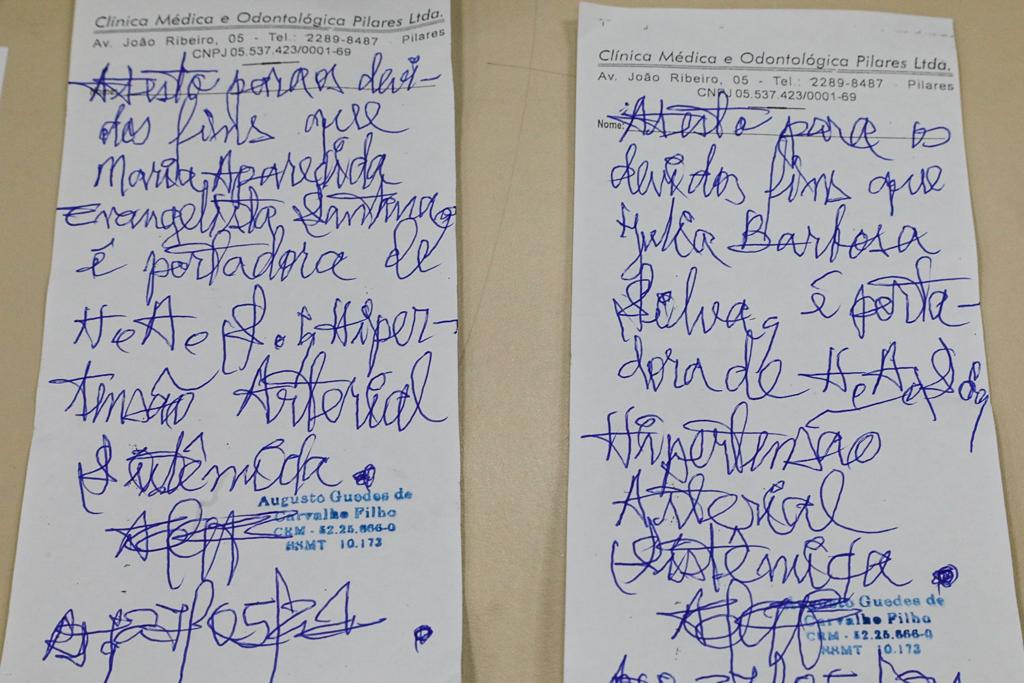 Clínica Médica e Odontológica Pilares Ltda.
Av. João Ribeiro, 05 - Tel.: 2289-8487 - Pilares
CNPJ 05.537.423/0001-69
Atesto para os devi-
dos fins que
Maria Aparecida
Evangelista Santana
é portadora de
H.A.S. Hiper-
tensão Arterial
Sistêmica.
Augusto Guedes de
Carvalho Filho
CRM - 52.25.666-0
10.173
27/05/21
Clínica Médica e Odontológica Pilares Ltda.
Av. João Ribeiro, 05 - Tel.: 2289-8487 - Pilares
CNPJ 05.537.423/0001-69
Nome:
Atesto para os
devidos fins que
Julia Barbosa
Silva, é porta-
dora de H.A.S.
Hipertensão
Arterial
Sistêmica.
Augusto Guedes de
Carvalho Filho
CRM - 52.25.666-0
10.173